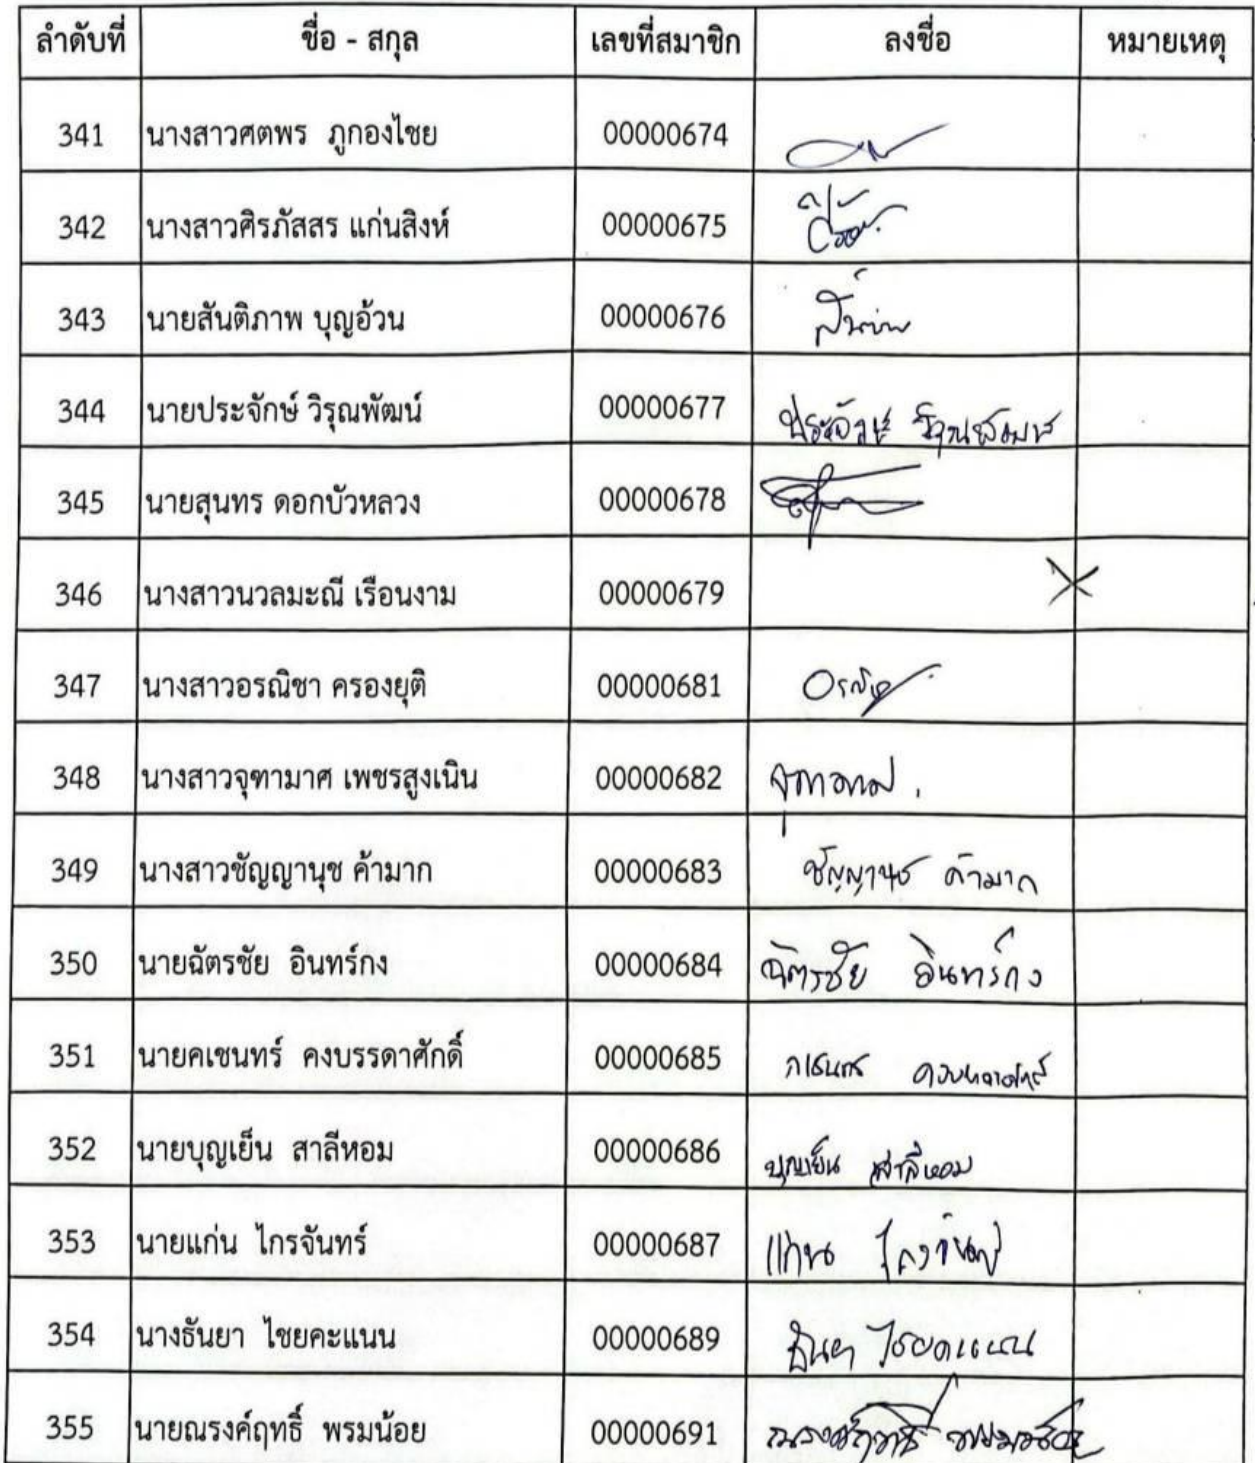 ลำดับที่ ชื่อ - สกุล เลขที่สมาชิก ลงชื่อ หมายเหตุ
341 นางสาวศตพร ภูกองไชย 00000674
342 นางสาวศิรภัสสร แก่นสิงห์ 00000675
343 นายสันติภาพ บุญอ้วน 00000676
344 นายประจักษ์ วิรุณพัฒน์ 00000677 ประจักษ์ วิรุณพัฒน์
345 นายสุนทร ดอกบัวหลวง 00000678
346 นางสาวนวลมะณี เรือนงาม 00000679
347 นางสาวอรณิชา ครองยุติ 00000681
348 นางสาวจุฑามาศ เพชรสูงเนิน 00000682
349 นางสาวชัญญานุช ค้ามาก 00000683 ชัญญานุช ค้ามาก
350 นายฉัตรชัย อินทร์กง 00000684 ฉัตรชัย อินทร์กง
351 นายคเชนทร์ คงบรรดาศักดิ์ 00000685
352 นายบุญเย็น สาลีหอม 00000686 บุญเย็น สาลีหอม
353 นายแก่น ไกรจันทร์ 00000687 แก่น
354 นางธันยา ไชยคะแนน 00000689 ธันยา ไชยคะแนน
355 นายณรงค์ฤทธิ์ พรมน้อย 00000691